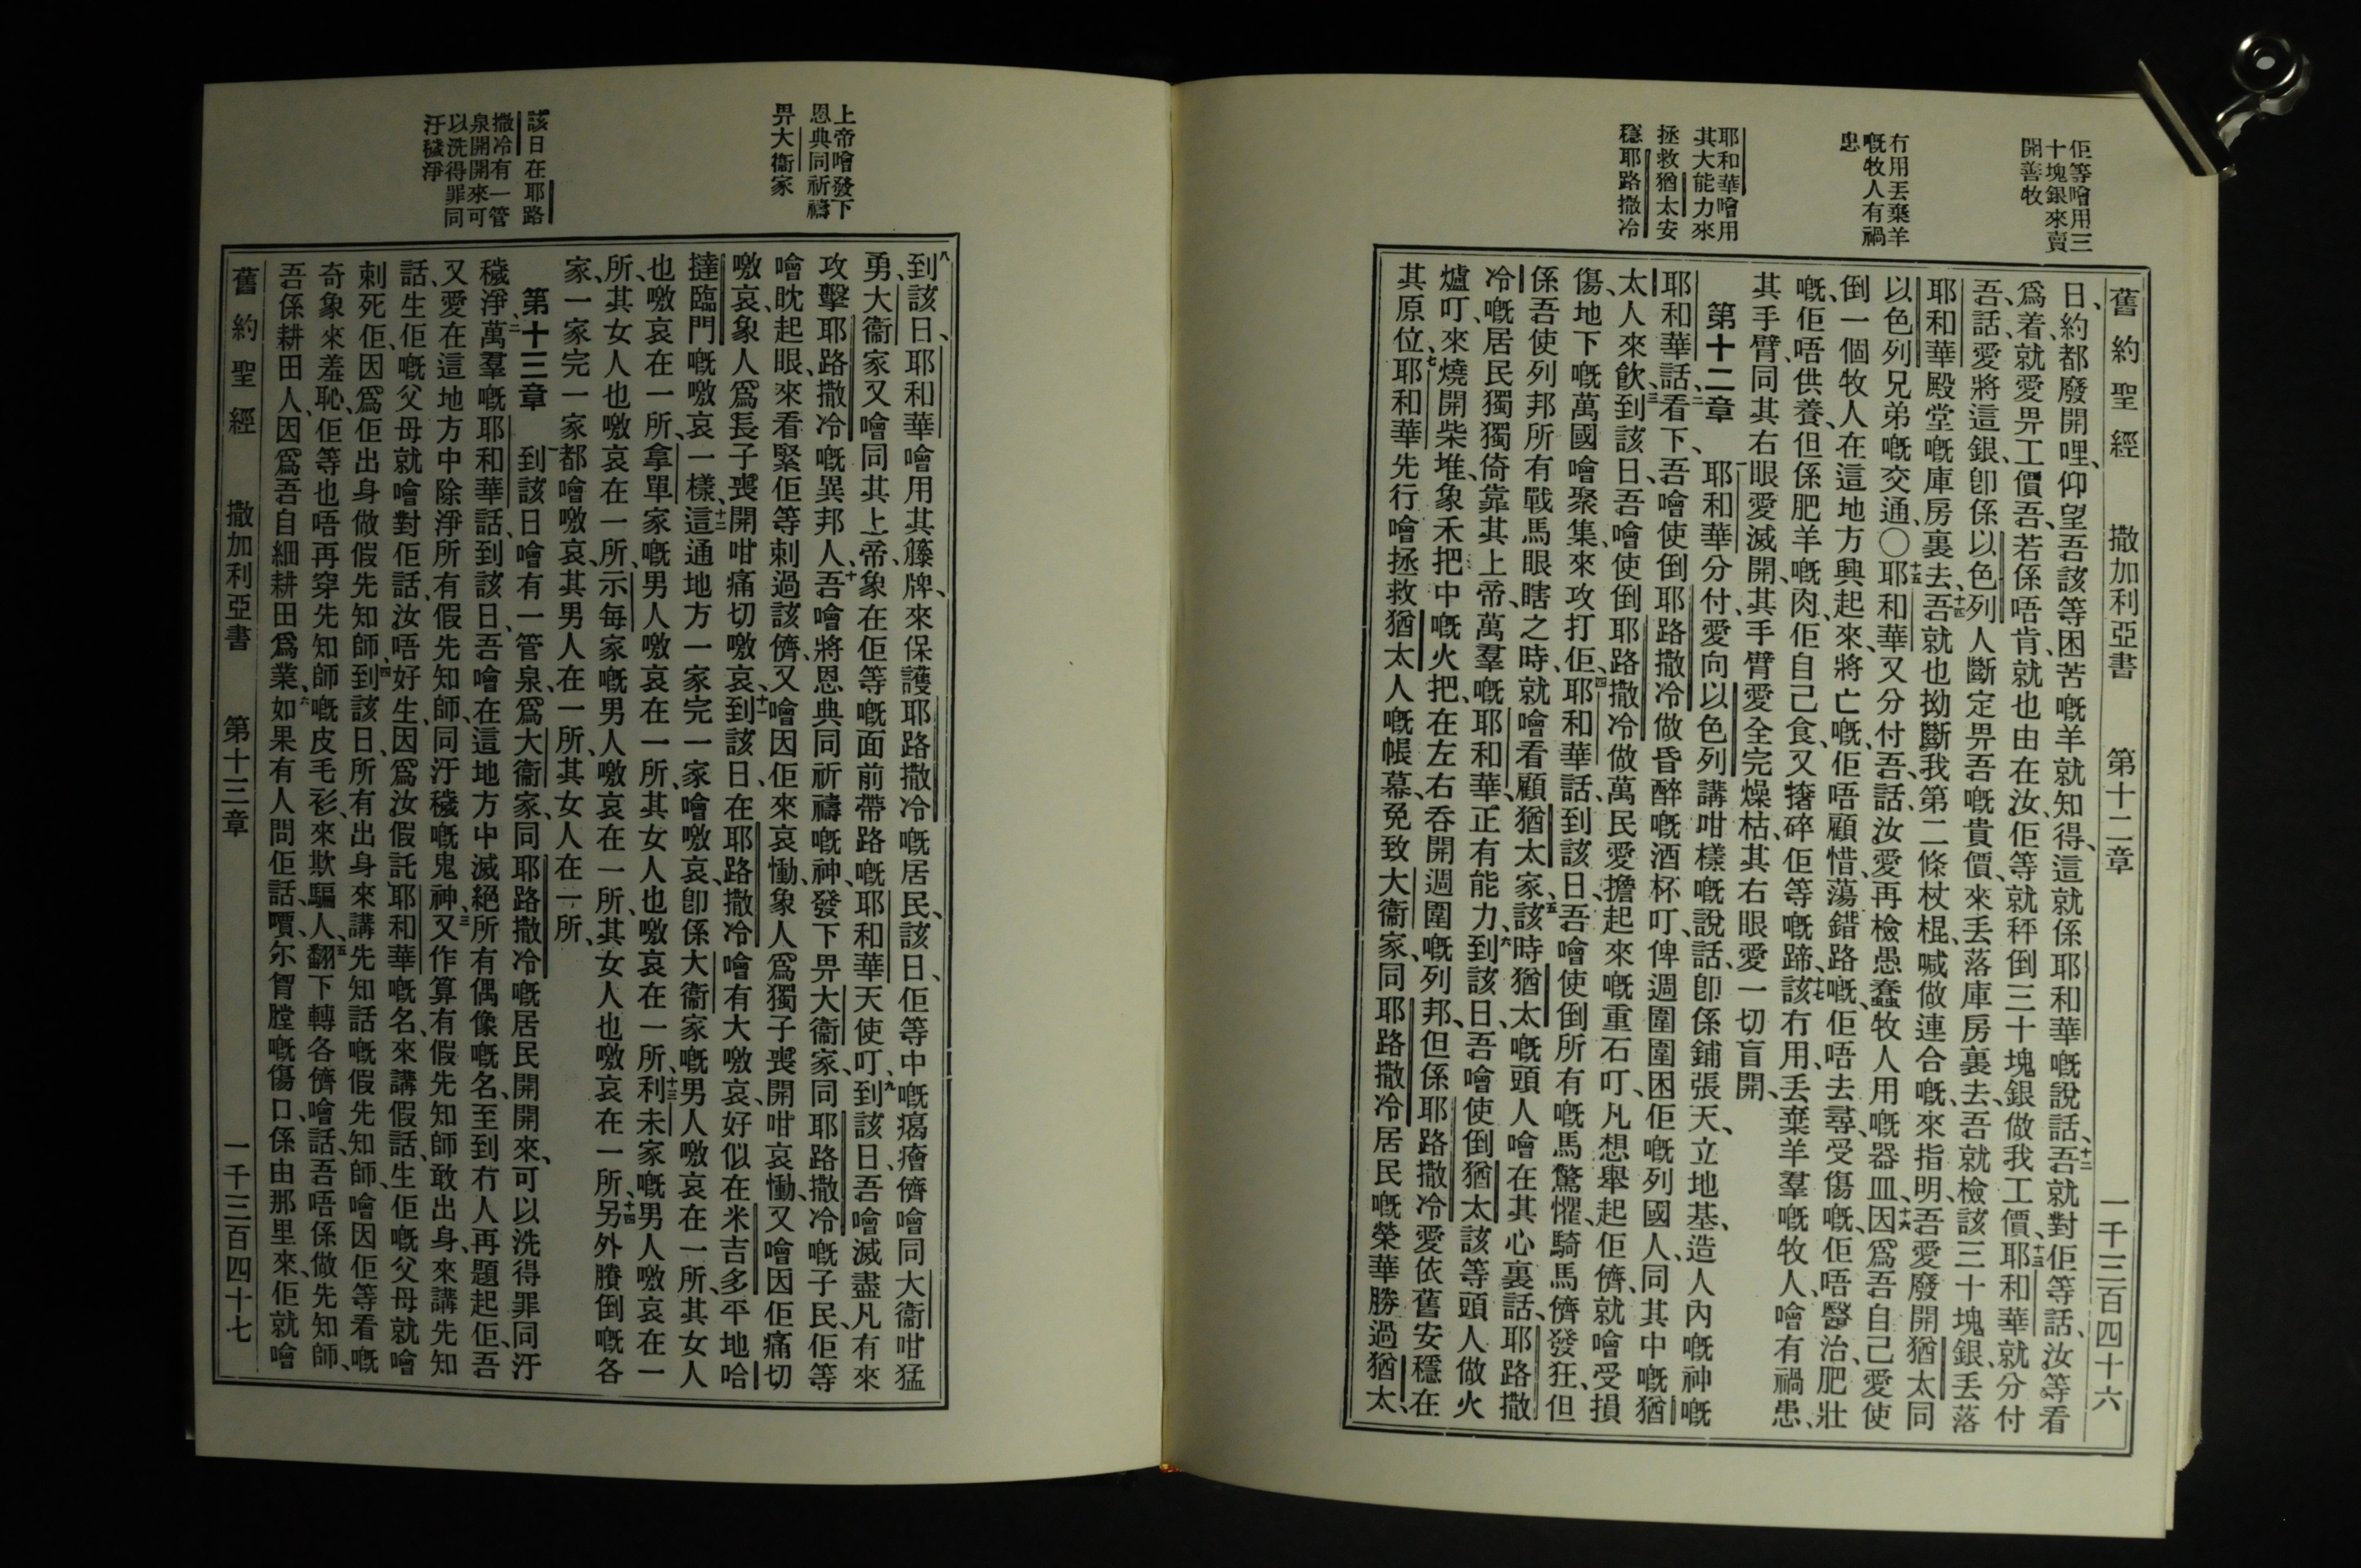 佢等噲用三
十塊銀來賣
開善牧
冇用丟棄羊
嘅牧人有禍
患
耶和華噲用
其大能力來
拯救猶太安
穩耶路撒冷
舊約聖經 撒加利亞書 第十二章 一千三百四十六
日、約都廢開哩、仰望吾該等困苦嘅羊就知得、這就係耶和華嘅說話、十二吾就對佢等話、汝等看
爲着就愛畀工價吾、若係唔肯、就也由在汝、佢等就秤倒三十塊銀做我工價、十三耶和華就分付
吾、話、愛將這銀、卽係以色列人斷定畀吾嘅貴價、來丟落庫房裏去、吾就檢該三十塊銀、丟落
耶和華殿堂嘅庫房裏去、十四吾就也拗斷我第二條杖棍、喊做連合嘅、來指明、吾愛廢開猶太同
以色列兄弟嘅交通、〇十五耶和華、又分付吾、話、汝愛再檢愚蠢牧人用嘅器皿、十六因爲吾自己愛使
倒一個牧人在這地方興起來、將亡嘅、佢唔顧惜、蕩錯路嘅、佢唔去尋、受傷嘅、佢唔醫治、肥壯
嘅、佢唔供養、但係肥羊嘅、肉、佢自己食、又撦碎佢等嘅蹄、十七該冇用、丟棄羊羣嘅牧人、噲有禍患、
其手臂、同其右眼愛滅開、其手臂愛全完燥枯、其右眼愛一切盲開、
第十二章 一耶和華分付、愛向以色列講咁樣嘅說話、卽係鋪張天、立地基、造人內嘅神嘅
耶和華話、二看下、吾噲使倒耶路撒冷做昏醉嘅酒杯叮、俾週圍圍困佢嘅列國人、同其中嘅猶
太人來飲、三到該日、吾噲使倒耶路撒冷做萬民愛擔起來嘅重石叮、凡想舉起佢儕、就噲受損
傷、地下嘅萬國噲聚集、來攻打佢、四耶和華話、到該日、吾噲使倒所有嘅馬驚懼、騎馬儕發狂、但
係吾使列邦所有戰馬眼瞎之時、就噲看顧猶太家、五該時猶太嘅頭人噲在其心裏話、耶路撒
冷嘅居民獨獨倚靠其上帝、萬羣嘅耶和華、正有能力、六到該日、吾噲使倒猶太該等頭人做火
爐叮、來燒開柴堆、象禾把中嘅火把、在左右吞開週圍嘅列邦、但係耶路撒冷愛依舊安穩在
其原位、七耶和華先行噲拯救猶太人嘅帳幕、免致大衞家、同耶路撒冷居民嘅榮華勝過猶太、
上帝噲發下
恩典同祈禱
畀大衞家
該日在耶路
撒冷有一管
泉開開來可
以洗得罪同
汙穢淨
八到該日、耶和華噲用其籐牌、來保護耶路撒冷嘅居民、該日、佢等中嘅瘑癐儕噲同大衞咁猛
勇、大衞家又噲同其上帝、象在佢等嘅面前帶路嘅、耶和華天使叮、九到該日、吾噲滅盡凡有來
攻擊耶路撒冷嘅異邦人、十吾噲將恩典同祈禱嘅神、發下畀大衞家、同耶路撒冷嘅子民、佢等
噲眈起眼、來看緊佢等刺過該儕、又噲因佢來哀慟、象人爲獨子喪開咁哀慟、又噲因佢痛切
噭哀、象人爲長子喪開咁痛切噭哀、十一到該日、在耶路撒冷噲有大噭哀、好似在米吉多平地哈
撻臨門嘅噭哀一樣、十二這通地方一家完一家噲噭哀、卽係大衞家嘅男人噭哀在一所、其女人
也噭哀在一所、拿單家嘅男人噭哀在一所、其女人也噭哀在一所、十三利未家嘅男人噭哀在一
所、其女人也噭哀在一所、示每家嘅男人噭哀在一所、其女人也噭哀在一所、十四另外賸倒嘅各
家、一家完一家都噲噭哀、其男人在一所、其女人在一所、
第十三章 一到該日噲有一管泉、爲大衞家、同耶路撒冷嘅居民開開來、可以洗得罪同汙
穢淨、二萬羣嘅耶和華話、到該日、吾噲在這地方中滅絕所有偶像嘅名、至到冇人再題起佢、吾
又愛在這地方中除淨所有假先知師、同汙穢嘅鬼神、三又作算有假先知師敢出身、來講先知
話、生佢嘅父母就噲對佢話、汝唔好生、因爲汝假託耶和華嘅名、來講假話、生佢嘅父母就噲
刺死佢、因爲佢出身做假先知師、四到該日、所有出身來講先知話嘅假先知師、噲因佢等看嘅
奇象來羞恥、佢等也唔再穿先知師嘅皮毛衫、來欺騙人、五翻下轉各儕噲話、吾唔係做先知師、
吾係耕田人、因爲吾自細耕田爲業、六如果有人問佢話、嘪、尔胷膛嘅傷口、係由那里來、佢就噲
舊約聖經 撒加利亞書 第十三章 一千三百四十七